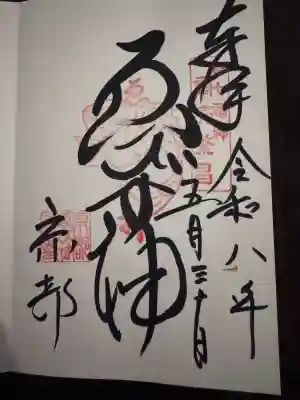 奉拝
令和八年
五月三十日
ゑびす神
京都